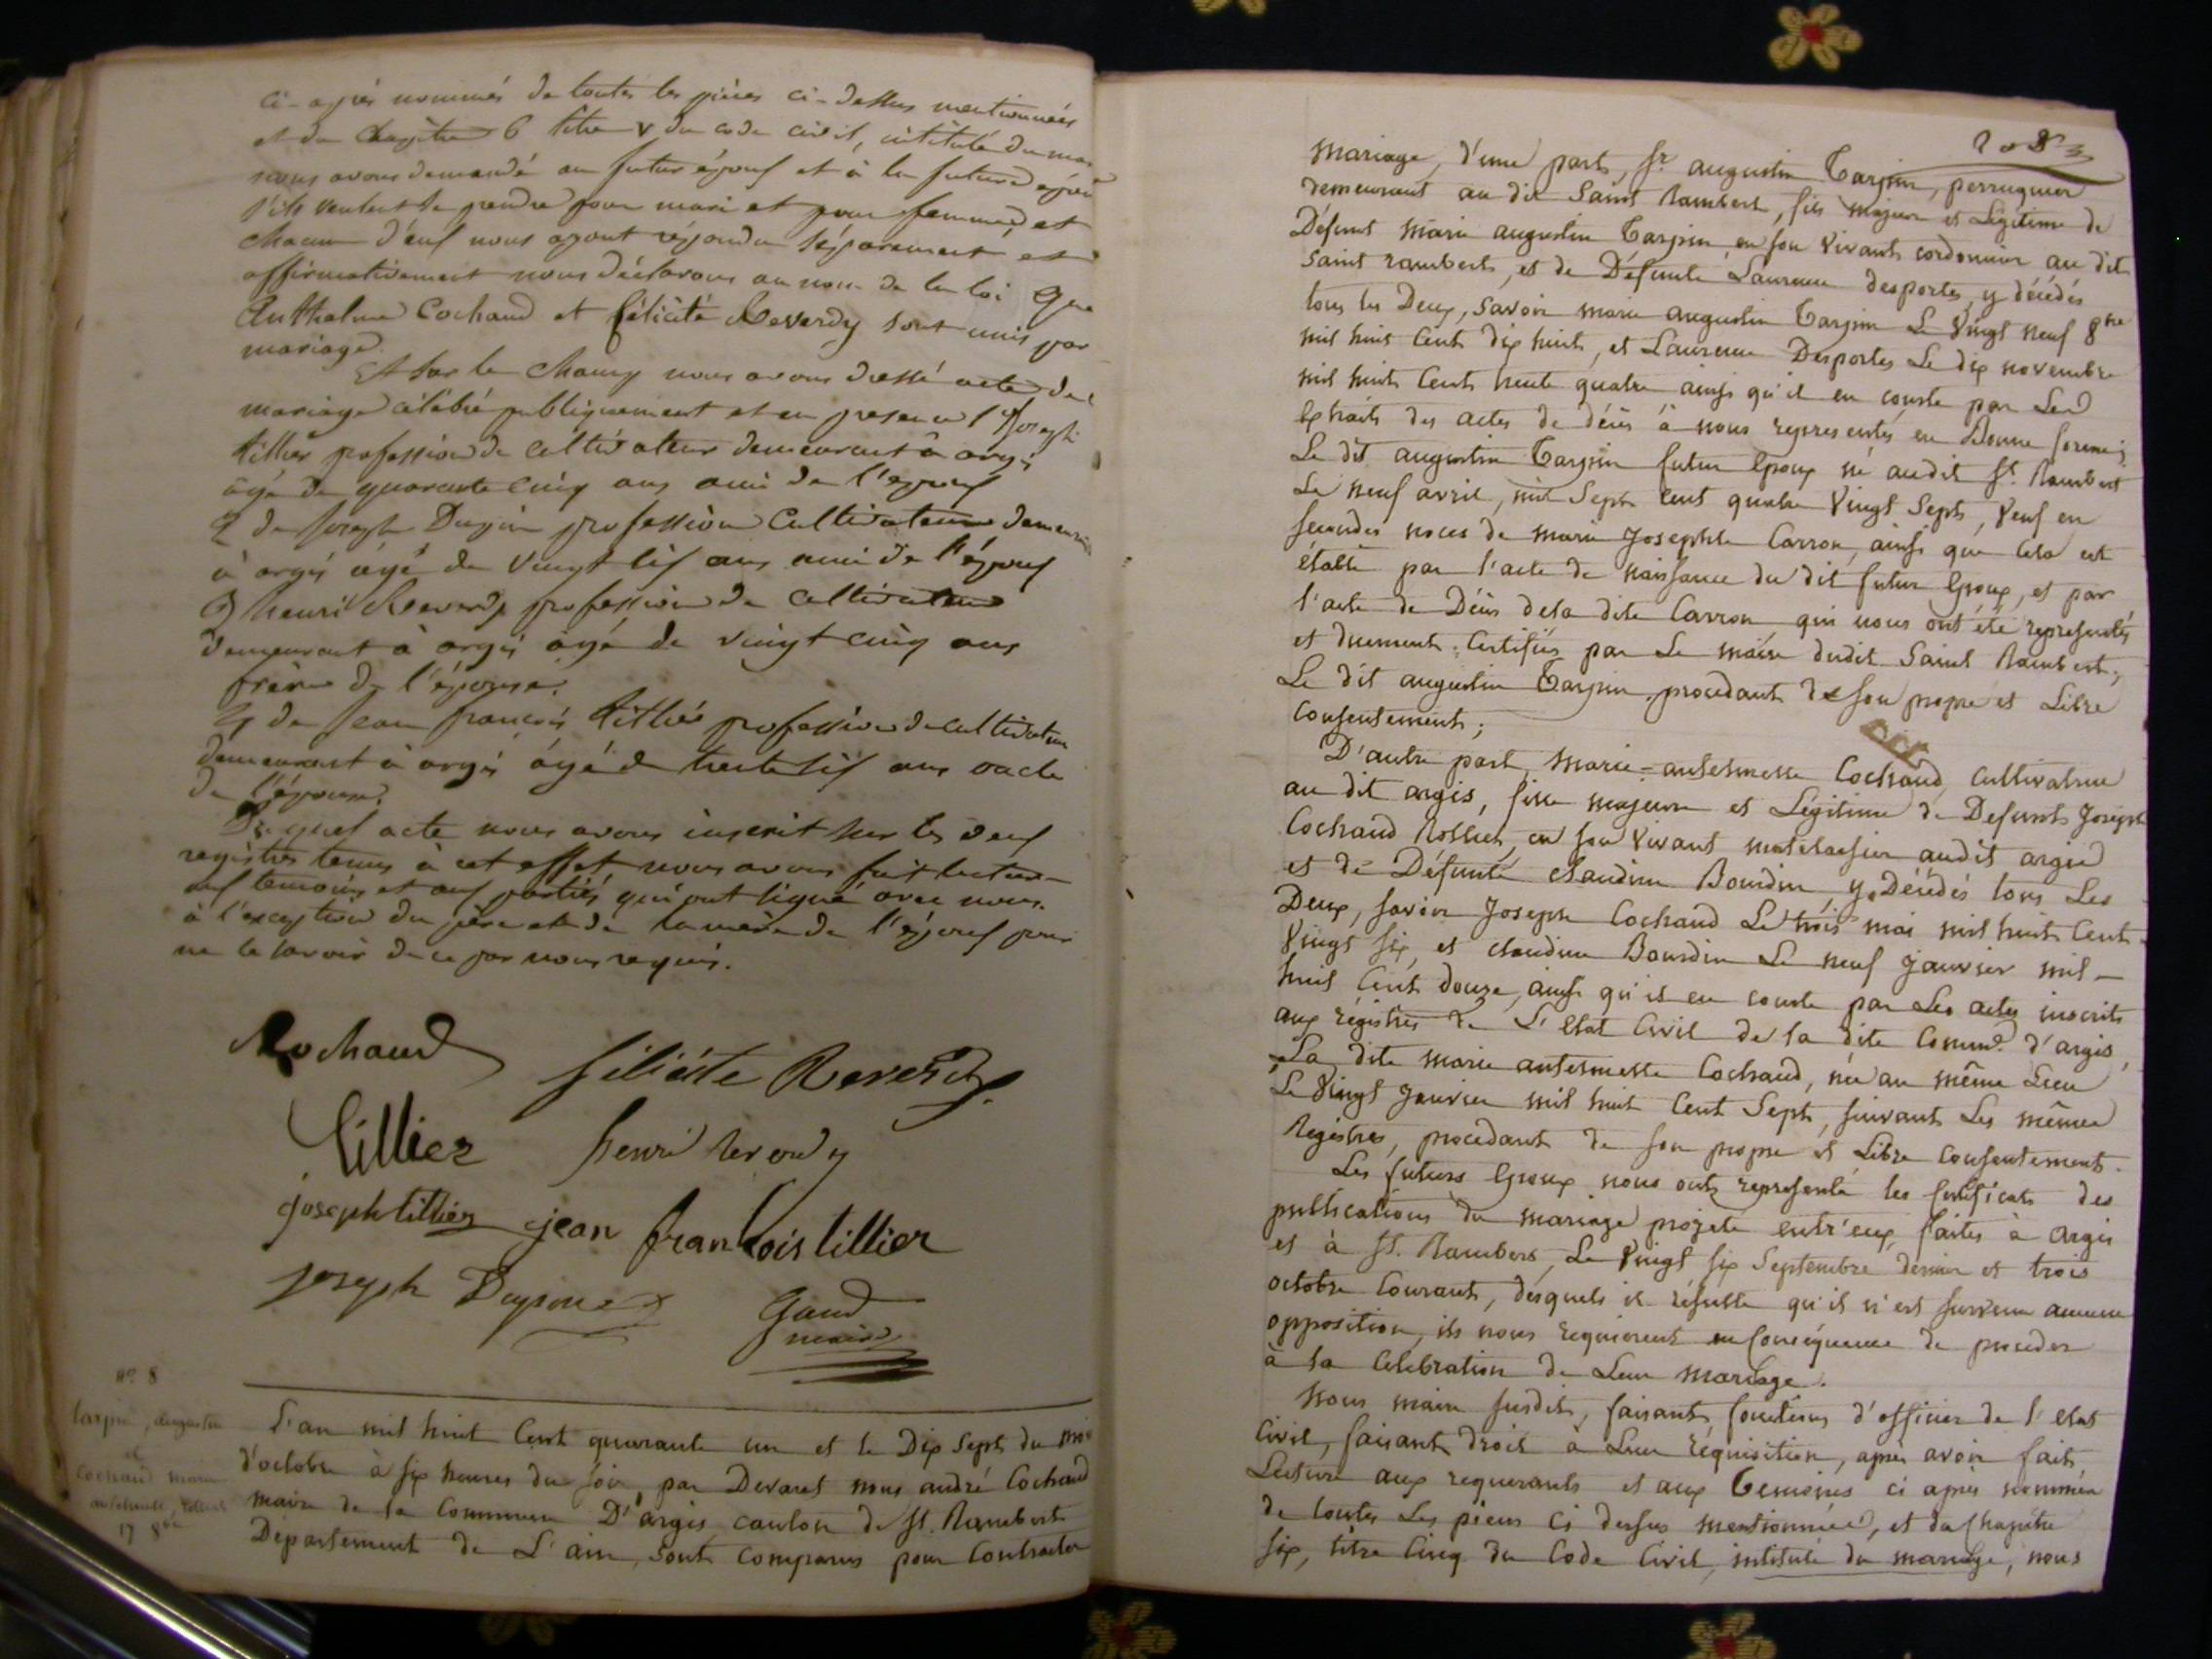 ci-après nommés de toutes les pièces ci-dessus mentionnées
et du Chapitre 6 titre V du code civil, intitulé du mar
nous avons demandé au futur époux et à la future épou
s'ils veulent se prendre pour mari et pour femme, et
chacun d'eux nous ayant répondu séparement et
affirmativement nous déclarons au nom de la loi que
Anthelme Cochaud et félicité Reverdy sont unis par
mariage.
Et sur le champ nous avons dressé acte de
mariage célébré publiquement et en presence 1° joseph
tillier profession de cultivateur demeurant à argis
âgé de quarante cinq ans ami de l'époux
2 de joseph Dupin profession Cultivateur demeurant
à argis âgé de vingt six ans ami de l'époux
3 henri Reverdy profession de cultivateur
demeurant à argis âgé de vingt cinq ans
frère de l'épouse.
4 de jean françois tillier profession de cultivateur
demeurant à argis âgé de trente six ans oncle
de l'épouse.
Duquel acte nous avons inscrit sur les deux
registres tenus à cet effet nous avons fait lecture
aux temoins et aux parties qui ont signé avec nous
à l'exception du père et de la mère de l'époux pour
ne le savoir de ce par nous requis.
Cochaud
féliéité Reverdy
Tillier
henri reverdy
joseph tillier
jean francois tillier
joseph
Gaud
maire
n° 8
tarpin, augustin
et
Cochaud marie
antelmette, Rollier
17 8bre
L'an mil huit Cent quarante un et le Dix Sept du moi
d'octobre à six heures du soir, par Devant nous andré Cochaud
maire de la Commune D'argis canton de St. Rambert
Département de L'ain, sont comparus pour Contracter
208
mariage, d'une part, Sr. augustin Tarpin, perruquier
demeurant au dit Saint Rambert, fils majeur et Légitime de
Défunt marie augustin Tarpin en son vivant cordonnier au dit
saint rambert, et de Défunte Laurence desportes, y décédés
tous les Deux, savoir marie augustin Tarpin Le Vingt neuf 8bre
mil huit Cent dix huit, et Laurence Desportes Le dix novembre
mil huit Cent trente quatre ainsi qu'il en conste par Les
Extraits des actes de décès à nous representés en Bonne forme;
Le dit augustin Tarpin futur Epoux né audit St. Rambert
Le neuf avril, mil Sept cent quatre Vingt Sept, Veuf en
secondes noces de marie Josephte Carron, ainsi que Cela est
établi par l'acte de naissance du dit futur Epoux, et par
l'acte de Décès dela dite Carron qui nous ont été representés
et duement Certifiés par Le maire dudit Saint Rambert;
Le dit augustin Tarpin, procédant de son propre et Libre
Consentement;
D'autre part, Marie-antelmette Cochaud, Cultivatrice
au dit argis, fille majeure et Légitime de Defunt Joseph
Cochaud Rollier, en son Vivant matelassier audit argis
et de Défunte Claudine Bourdin, y Décédés tous Les
Deux, savoir Joseph Cochaud Le trois mai mil huit Cent
Vingt six, et claudine Bourdin Le neuf janvier mil-
huit Cent douze, ainsi qu'il en conste par Les actes inscrits
aux régistres de L'Etat Civil de la dite Commne. d'argis,
La dite marie antelmette Cochaud, née au même Lieu
Le Vingt Janvier mil huit Cent Sept, suivant Les mêmes
Registres, procédant de son propre et Libre Consentement.
Les futurs Epoux nous ont representé les Certificats des
publications du mariage projeté entr'eux, faites à argis
et à St. Rambert, Le Vingt six Septembre dernier et trois
octobre Courant, desquels il résulte qu'il n'est survenu aucune
opposition, ils nous requierent en Conséquence de proceder
à la Célébration de Leur Mariage.
Nous maire susdit, faisant fonctions d'officier de l'Etat
Civil, faisant Droit à Leur réquisition, après avoir fait
Lecture aux requerants et aux Temoins ci après nommés
de toutes Les pieces Ci dessus mentionnées, et du Chapitre
six, titre Cinq du Code Civil, intitulé du mariage, nous